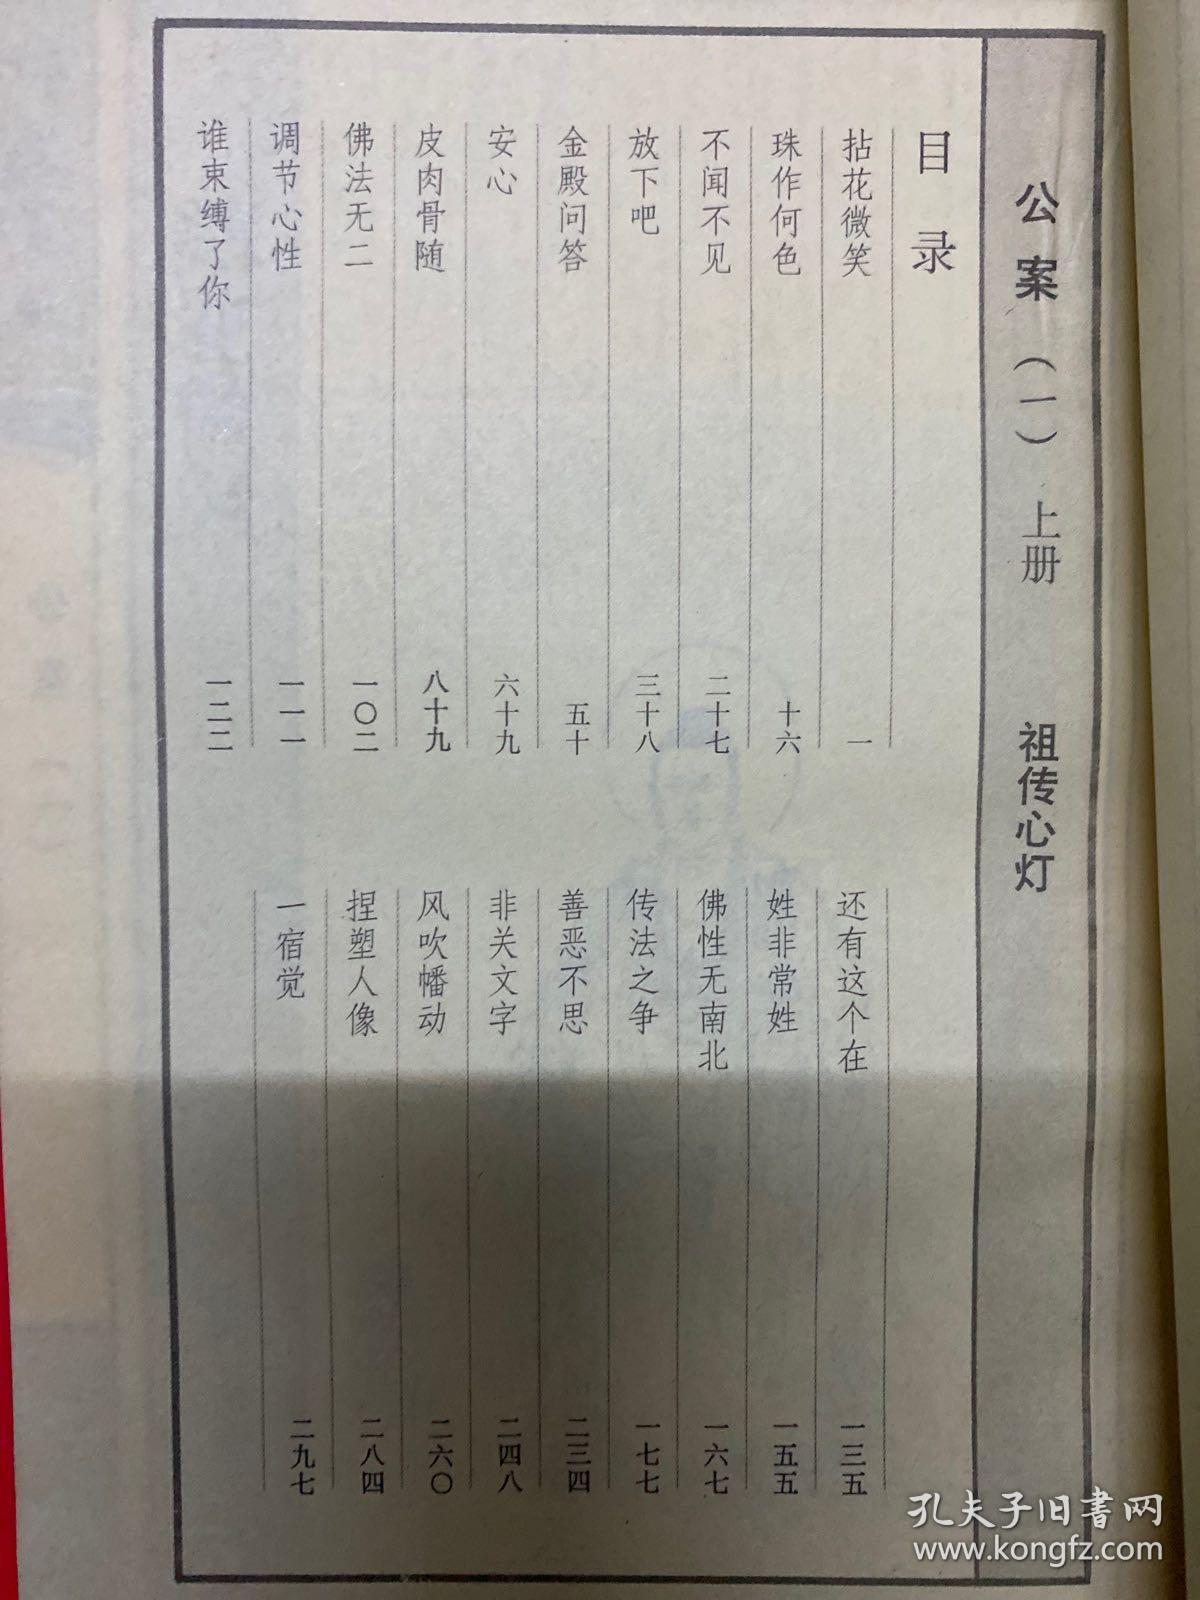 公案（一）上册 祖传心灯
目录
拈花微笑 一
珠作何色 十六
不闻不见 二十七
放下吧 三十八
金殿问答 五十
安心 六十九
皮肉骨随 八十九
佛法无二 一〇二
调节心性 一一一
谁束缚了你 一二二
还有这个在 一三五
姓非常姓 一五五
佛性无南北 一六七
传法之争 一七七
善恶不思 二三四
非关文字 二四八
风吹幡动 二六〇
捏塑人像 二八四
一宿觉 二九七
孔夫子旧書网
www.kongfz.com